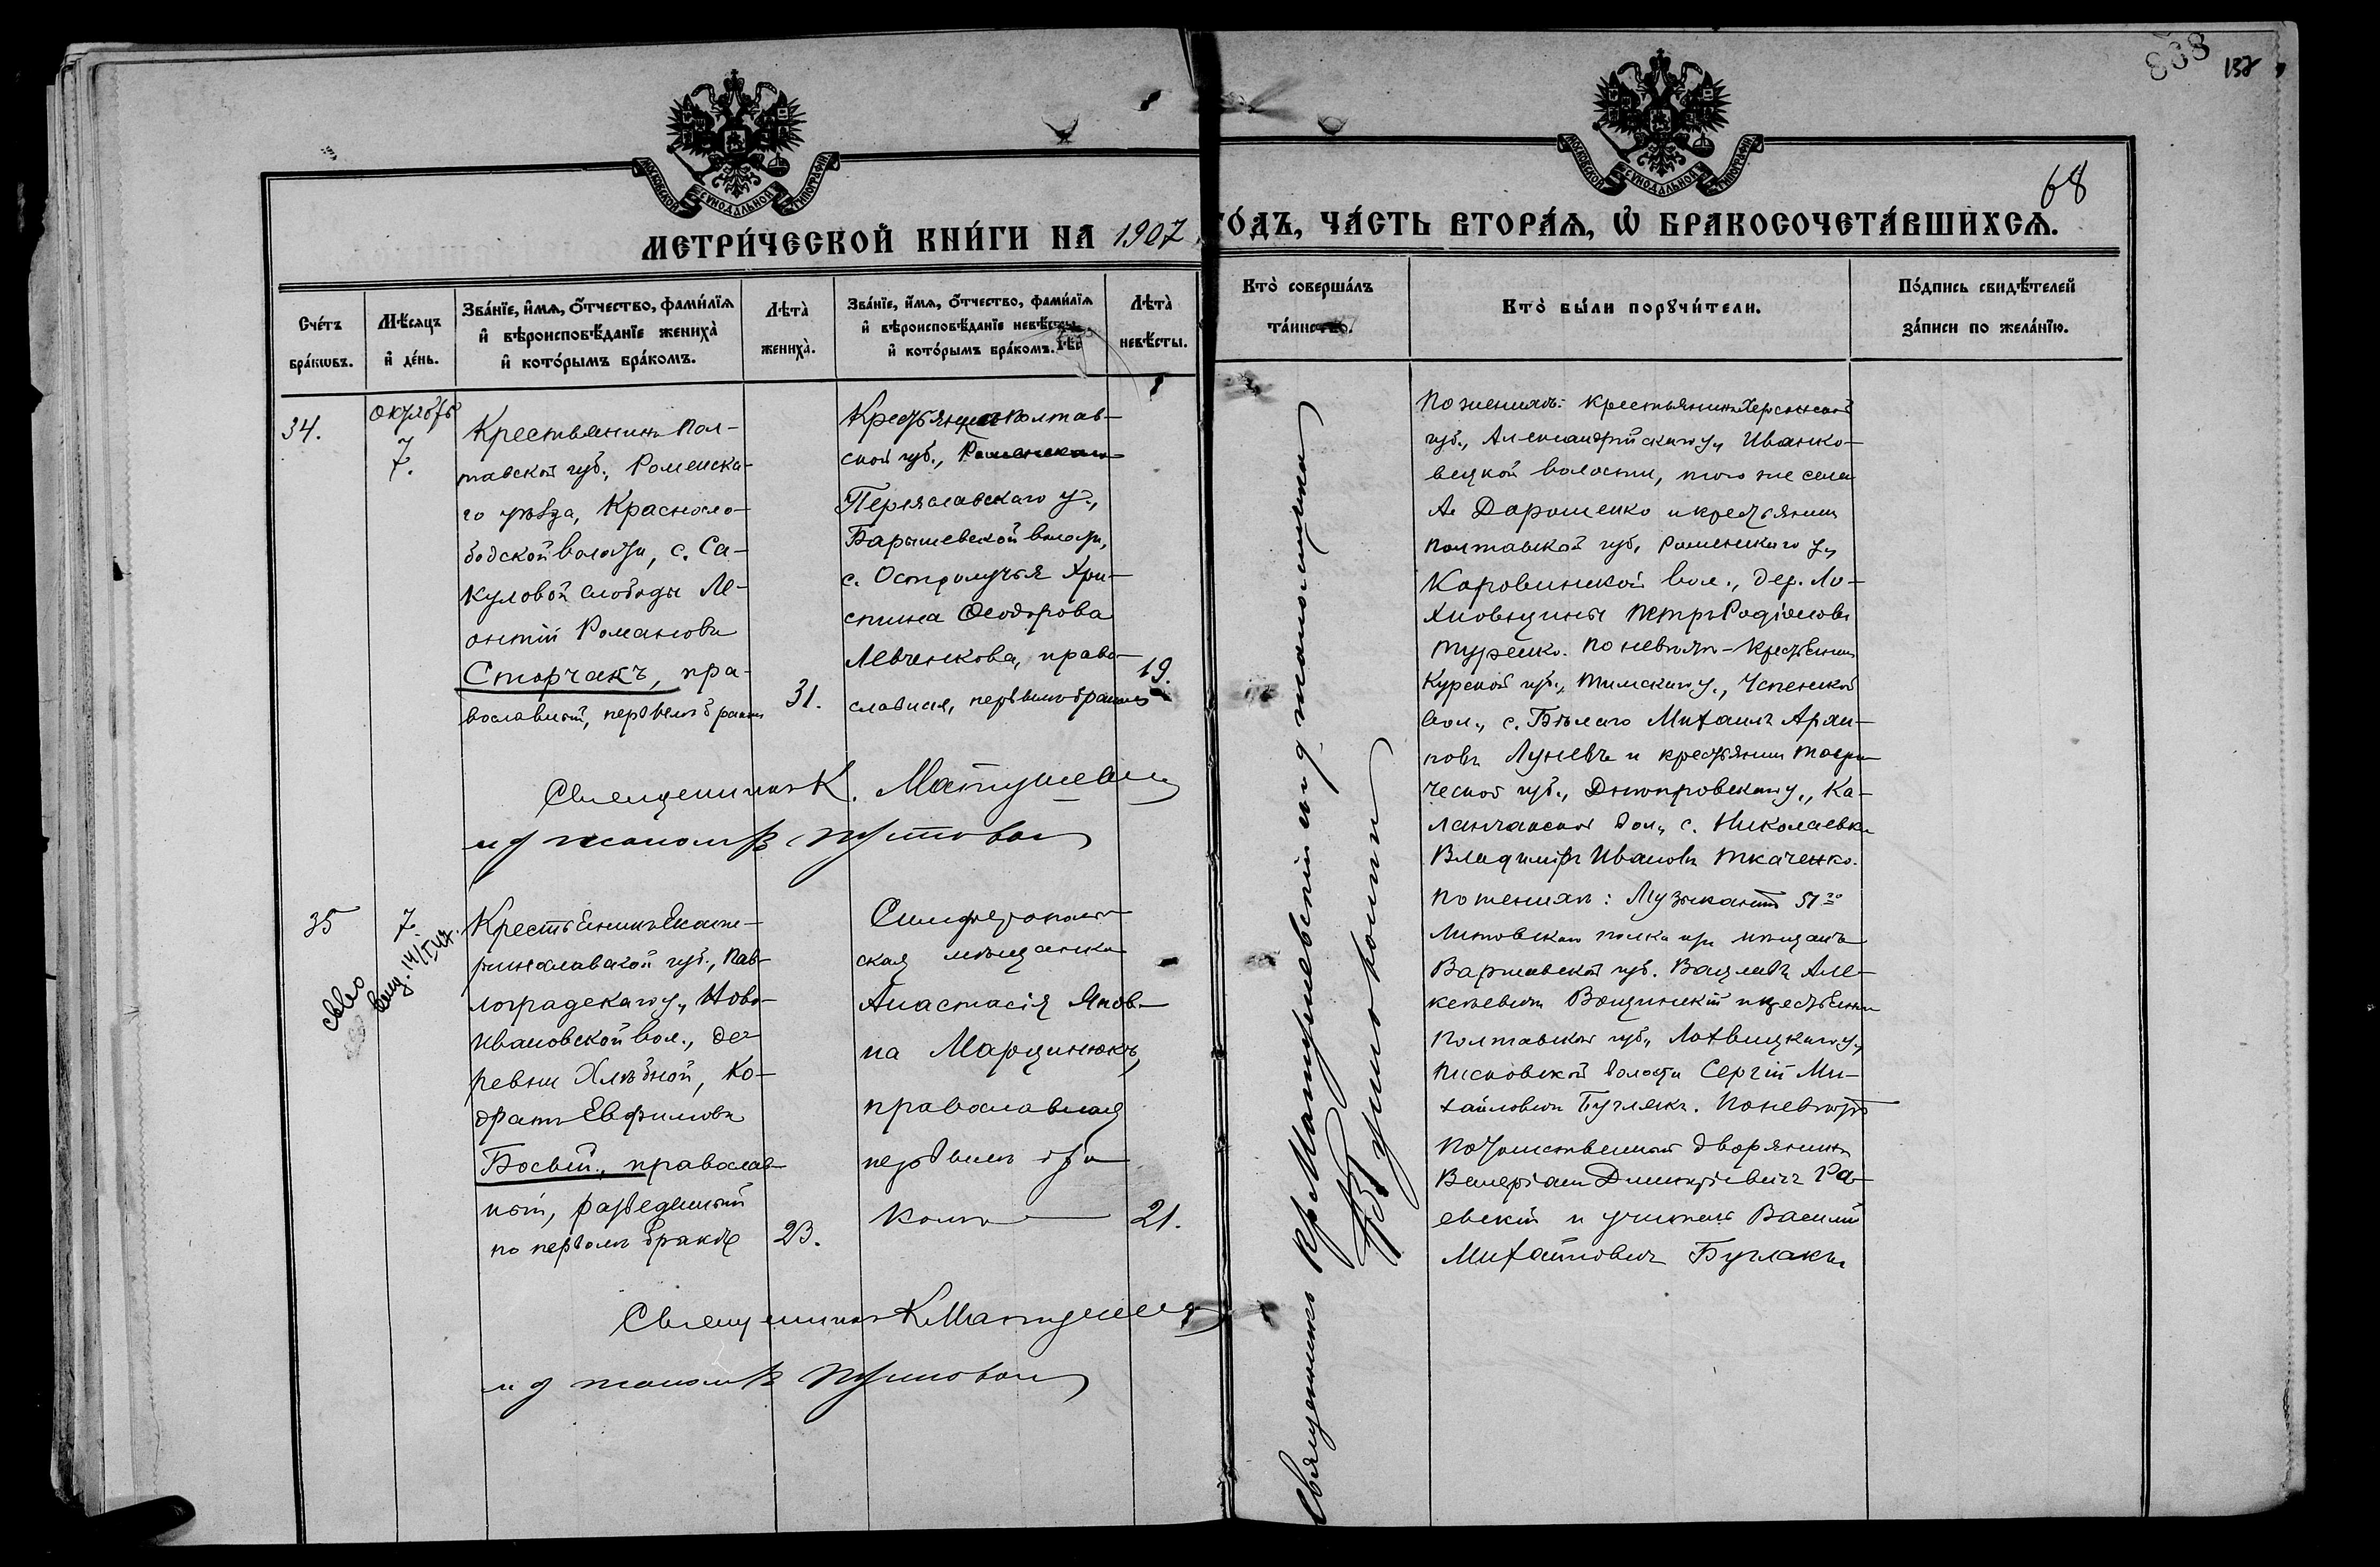 868 138
68
МОСКОВСКОЙ СУНОДАЛЬНОЙ ТИПОГРАФІИ
МОСКОВСКОЙ СУНОДАЛЬНОЙ ТИПОГРАФІИ
МЕТРИ́ЧЕСКОЙ КНИ́ГИ НА 1907 ГО́ДЪ, ЧА́СТЬ ВТОРА́Ѧ, Ѡ҆ БРАКОСОЧЕТА́ВШИХСѦ.
Сче́тъ бра́кѡвъ.
Мѣ́сяцъ и҆ де́нь.
Зва́нїе, и҆́мѧ, ѻ҆́тчество, фами́лїѧ
и҆ вѣроисповѣ́данїе жениха̀
и҆ кото́рымъ бра́комъ.
Лѣта̀ жениха̀.
Зва́нїе, и҆́мѧ, ѻ҆́тчество, фами́лїѧ
и҆ вѣроисповѣ́данїе невѣ́сты,
и҆ кото́рымъ бра́комъ.
Лѣта̀ невѣ́сты.
Кто̀ соверша́лъ та́инство.
Кто̀ бы́ли порꙋчи́тели.
По́дпись свидѣ́телей за́писи по жела́нїю.
34.
октябрь
7.
Крестьянинъ Пол-
тавской губ., Роменска-
го уѣзда, Красносло-
бодской волости, с. Са-
куловой слободы Ле-
онтій Романовъ
Сторчакъ, пра-
вославный, первымъ бракомъ
31.
Крестьянка Полтав-
ской губ., Роменскаго
Переяславскаго у.,
Барышевской волости,
с. Остролучья Хри-
стина Ѳеодорова
Левченкова, право-
славная, первымъ бракомъ
19.
Священникъ К. Матушевскій
и д псаломщ
Священникъ К Матушевскій и и д псаломщика
По женихѣ: крестьянинъ Херсонской
губ., Александрійскаго у., Иванко-
вецкой волости, того же села
А. Дорошенко и крестьянин
Полтавской губ. Роменскаго у.,
Коровинской вол., дер. Ло-
хновщины Петръ Родіоновъ
Туренко. По невѣстѣ - крестьянин
Курской губ., Тимскаго у., Успенской
вол., с. Бѣлаго Михаилъ Архи-
повъ Луневъ и крестьянин Таври-
ческой губ., Днѣпровскаго у., Ка-
ланчакской вол., с. Николаевки
Владиміръ Ивановъ Ткаченко.
35
7.
Крестьянинъ Екате-
ринославской губ., Пав-
лоградскаго у., Ново-
Ивановской вол., де-
ревни Хлѣбной, Ко-
дратъ Евфимовъ
Босый, православ-
ный, разведенный
по первомъ бракѣ
23.
Симферополь-
ская мѣщанка
Анастасія Яков-
на Марцинюкъ,
православная
первымъ бра-
комъ
21.
Священникъ К Матушевскій
и д псаломщ
По женихѣ: Музыкантъ 51го
Литовскаго полка мѣщанъ
Варшавской губ. Вацлавъ Але-
ксеевичъ Вощинскій и крестьянин
Полтавской губ., Лохвицкаго у.,
Писковской волости Сергій Ми-
хайловичъ Буглакъ. По невѣстѣ
потомственный дворянинъ
Валеріанъ Димитріевичъ Ра-
евскій и учитель Василій
Михайловичъ Буглакъ